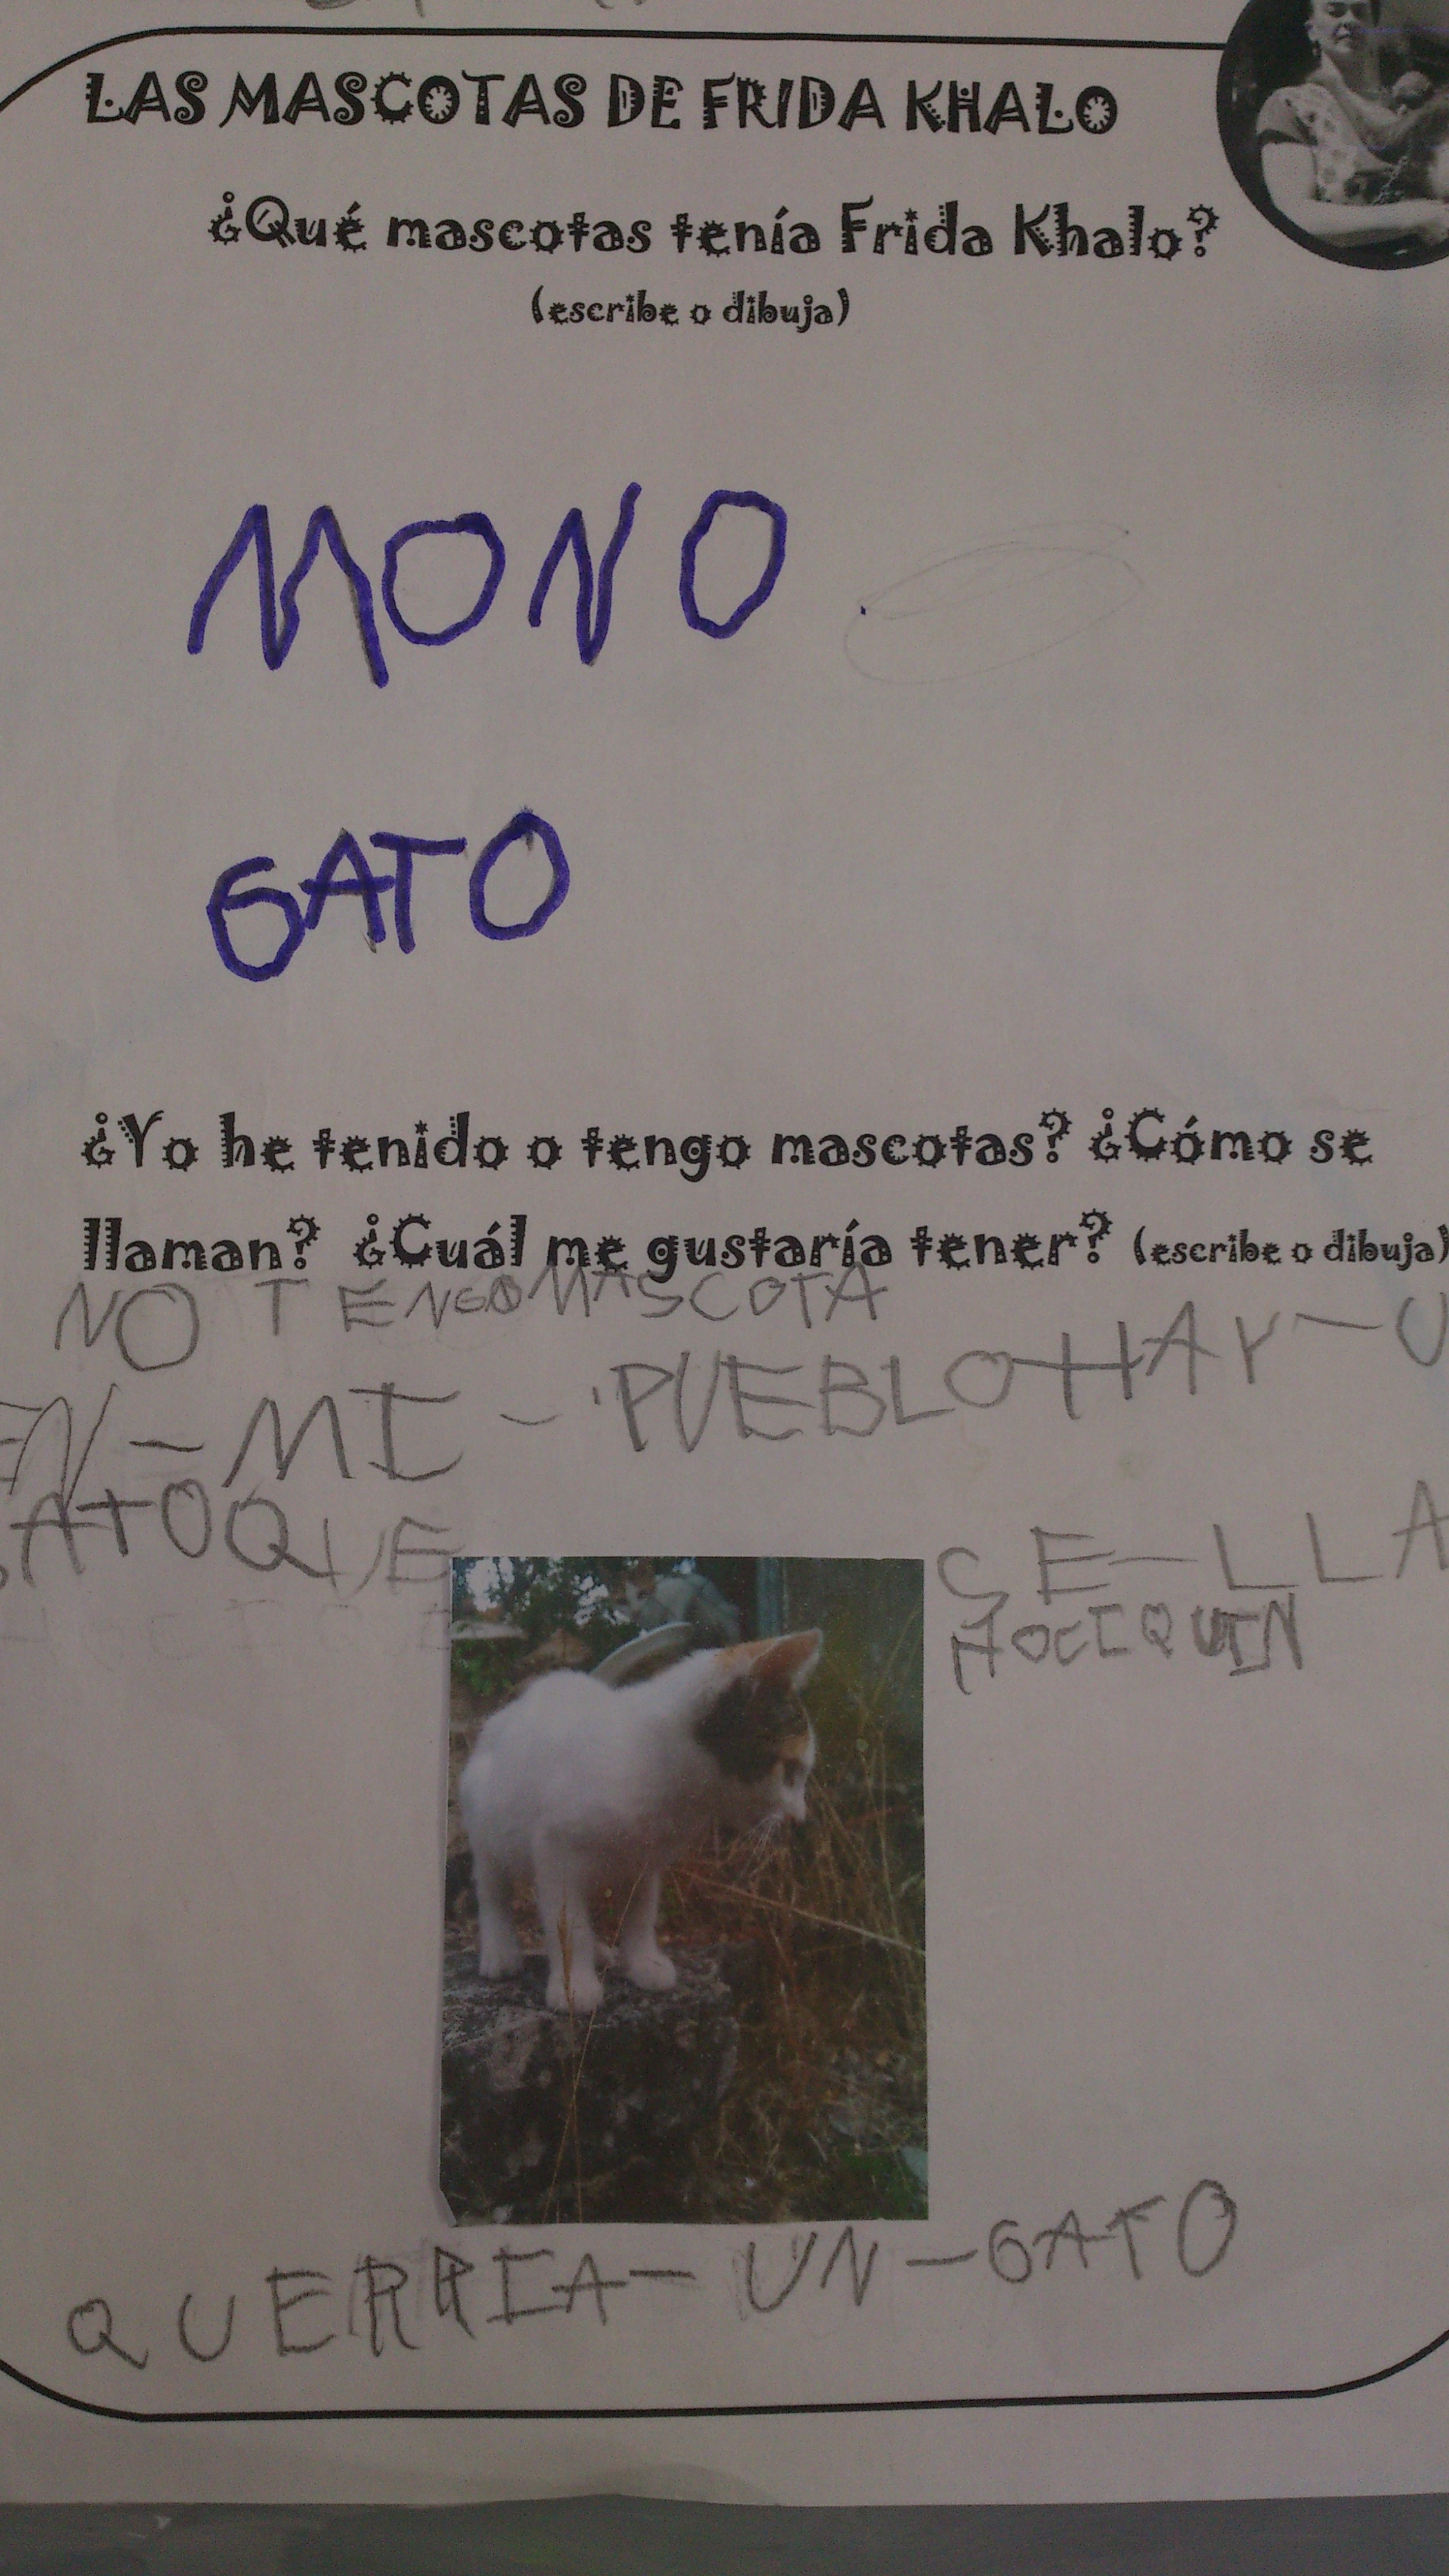 LAS MASCOTAS DE FRIDA KHALO
¿Qué mascotas tenía Frida Khalo?
(escribe o dibuja)
MONO
GATO
¿Yo he tenido o tengo mascotas? ¿Cómo se
llaman? ¿Cuál me gustaría tener? (escribe o dibuja)
NO TENGO MASCOTA
EN-MI-PUEBLO HAY-U
GATO QUE SE-LLA
HOCIQUIN
QUERRIA-UN-GATO